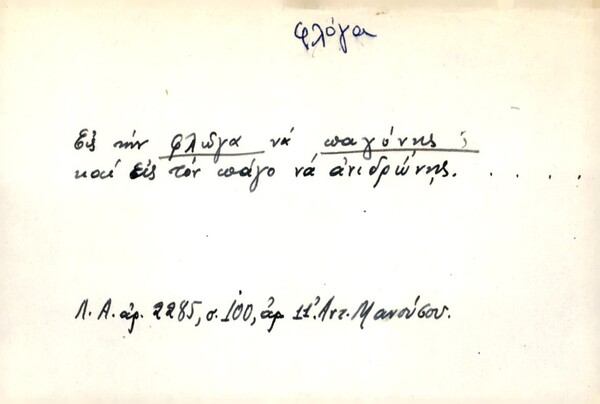 φλόγα
Εἰς τήν φλῶγα νά παγόνης ;
καί εἰς τόν πάγο νά ἀνιδρώνης. . . . .
Λ. Α. ἀρ. 2285, σ. 100, ἀρ 11. Ἀντ. Μανούσου.